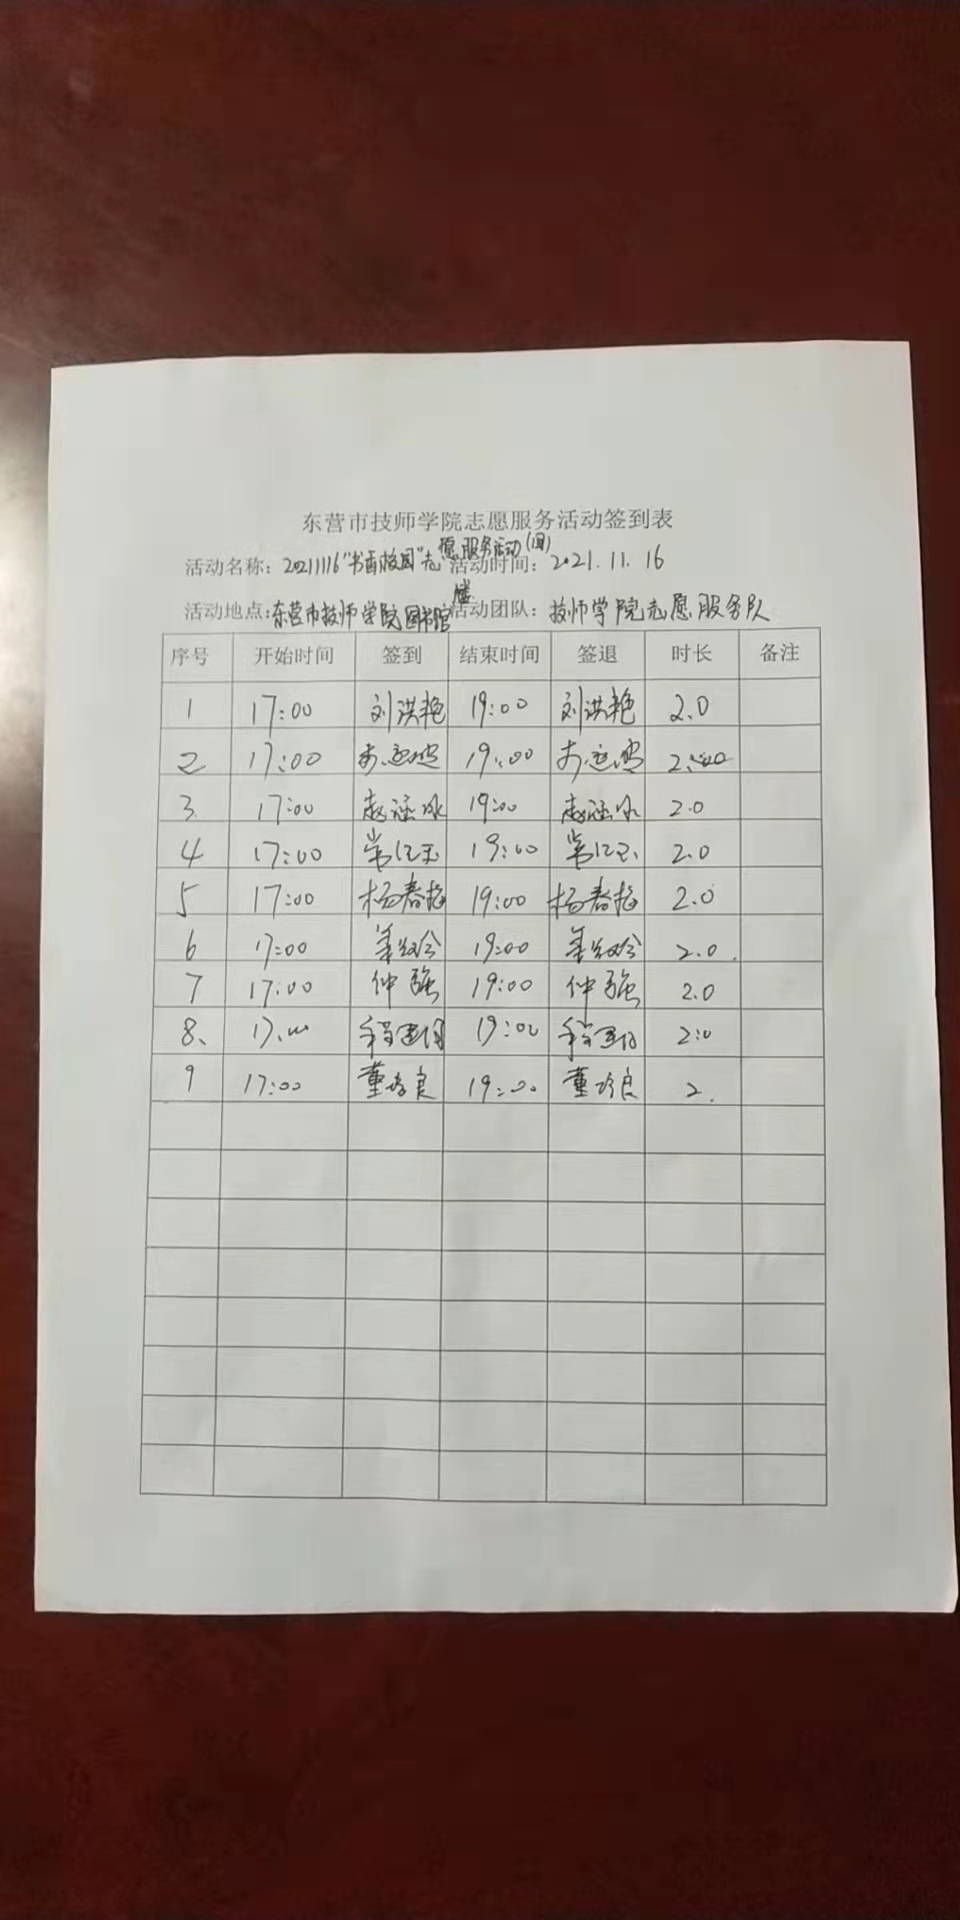 东营市技师学院志愿服务活动签到表
活动名称：20211116"书香校园"志愿服务活动(四) 活动时间：2021.11.16
活动地点：东营市技师学院图书馆楼 活动团队：技师学院志愿服务队
序号 开始时间 签到 结束时间 签退 时长 备注
1 17:00 刘洪艳 19:00 刘洪艳 2.0
2 17:00 19:00
3 17:00 19:00 2.0
4 17:00 常仁玉 19:00 常仁玉 2.0
5 17:00 杨春梅 19:00 杨春梅 2.0
6 17:00 19:00 2.0
7 17:00 仲强 19:00 仲强 2.0
8、 17:00 19:00 2:0
9 17:00 19:00 2.